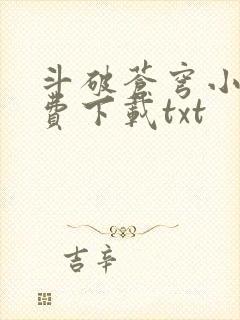 斗破蒼穹小
費下載txt
吉辛